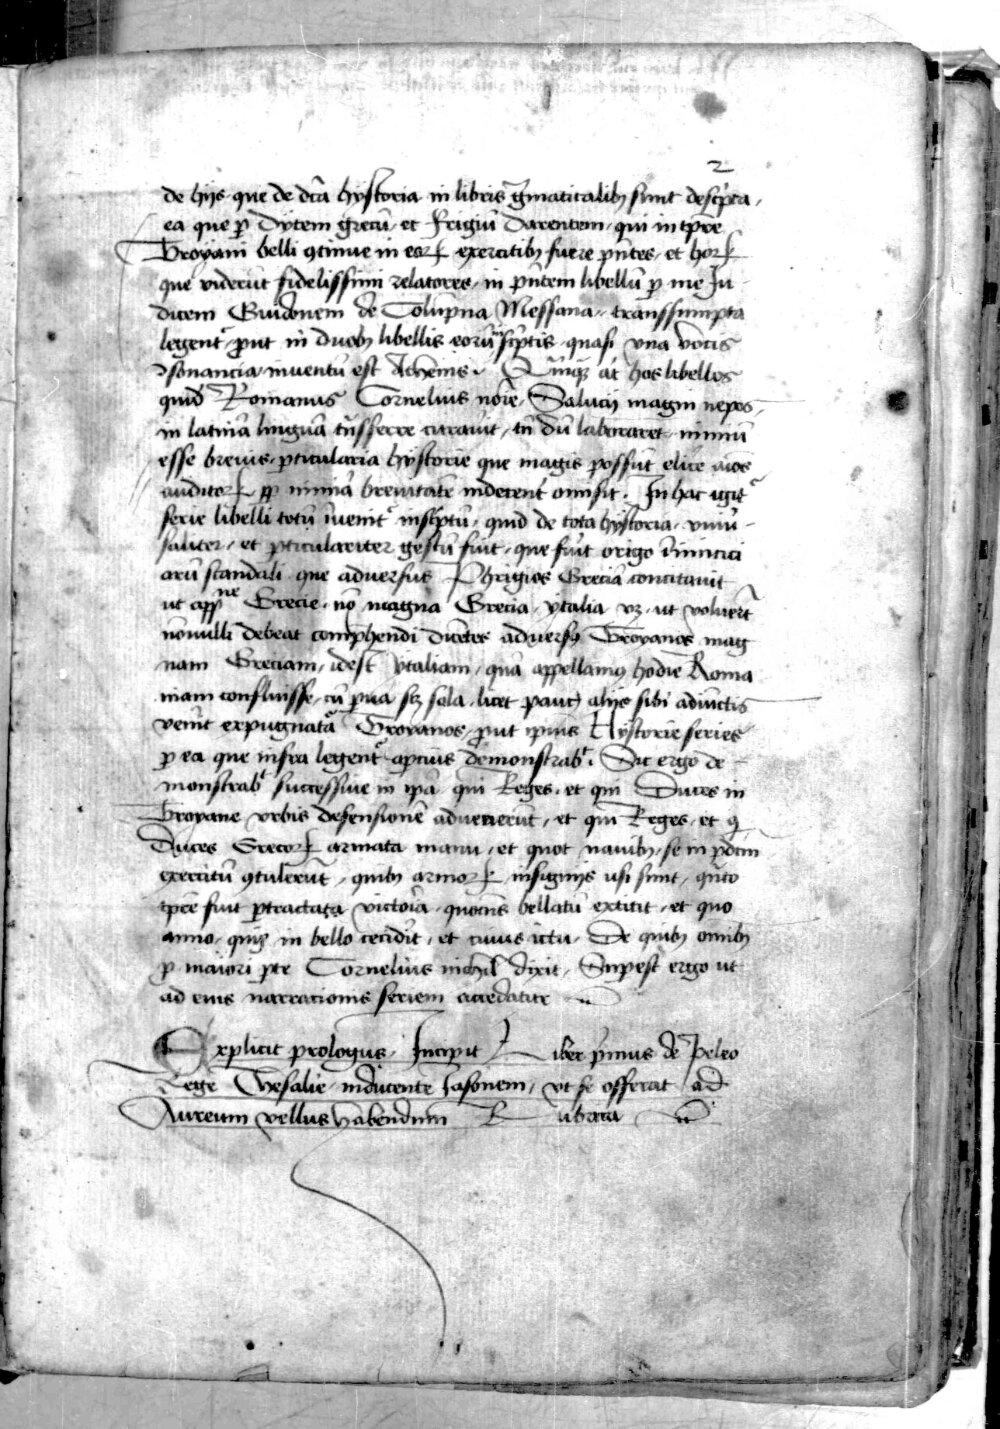 2
de hijs que de dcā hystoria in libris gͣmaticalibꝫ sunt descͥpta,
ea que ꝑ Dytem grecū, et Frigiū Darentem, qui in tꝑe
Troyani belli ꝯtinue in eoꝝ exercitibꝫ fuere pn̄tes, et hoꝝ
que viderūt fidelissimi relatores, in pn̄tem libellū ꝑ me Ju-
dicem Guidonem de Colūpna Messana, transsumpta
legentᷣ, ꝓut in duobꝫ libellis eorū īscͥptis, quasi una vocis
ꝯsonancia, inventū est Athenis. Quāqꝫ āt hos libellos
quidā Romanus Cornelius noīe, Salustij magni nepos,
in latinā linguā tͣnsferre curavit, tn̄ dū laboraret nimiū
esse brevis, ꝑticularia hystorie que magis possūt elicͤ aīos
auditoꝝ ꝓp nimiā brevitatē indecent̄ omisit. In hac igitᷣ
serie libelli totū īvenitᷣ inscͥptū, quid de tota hystoria, vniū-
saliter, et ꝑticulariter gestū fuit, que fuit origo īimici
arū scandali que adversus Phrigios Greciā concitavit
ut app̄ne Grecie, nō magna Grecia, ytalia vꝫ, ut voluerūt
nōnulli debeat comp̄hendi dicētes adversꝫ Troyanos mag
nam Greciam, idest ytaliam, quā appellamꝫ hodie Roma
niam confluxisse, cū ꝑva sꝫ sola, licet paucꝭ alijs sibi adiūctis
venit expugnatā Troyanos, ꝓut ipsius Hystorie series
ꝑ ea que infra legentᷣ apcius demonstrabit. Sic ergo de-
monstrabit successive in ip̄a qui Reges, et qui Duces in
Troyane urbis defensionē advenerūt, et qui Reges, et q̄
Duces Grecoꝝ armata manu, et quot navibꝫ, se in p̄dcm̄
exercitū ꝯtulerūt, quibꝫ armoꝝ insignijs usi sunt, qͣnto
tꝑe fuit ꝑtractata victoria, quociēs bellatū extitit, et quo
anno, quis in bello cecidit, et cuius ictu, De quibꝫ omībꝫ
ꝓ maiori ꝑte Cornelius nichil dixit, Suꝑest ergo ut
ad eius narracionis seriem accedatur
Explicit prologus, Incipit Liber pͥmus de Peleo
Rege Thesalie, inducente Jasonem, ut se offerat ad
Aureum vellus habendum Rubrica